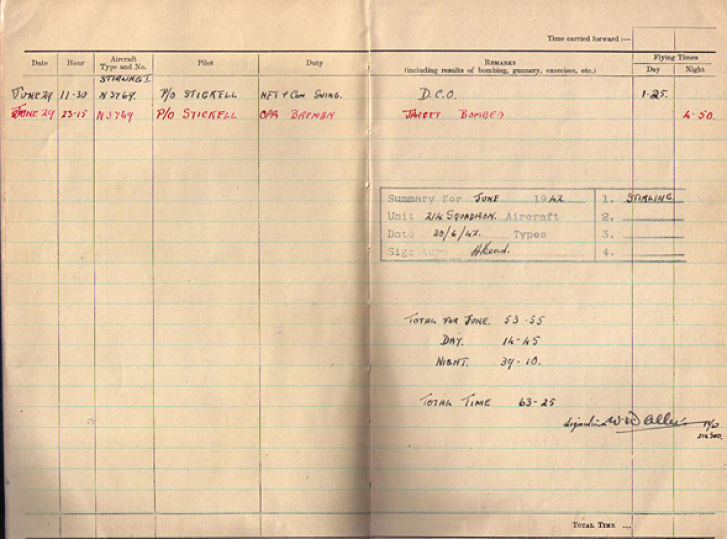 Time carried forward :—
Date Hour Aircraft Type and No. Pilot Duty Remarks (including results of bombing, gunnery, exercises, etc.) Flying Times Day Night
STIRLING I
JUNE 29 11-30 N3769. P/O STICKELL NFT + Com SWING. D.C.O. 1-25.
JUNE 29 23-15 N3769 P/O STICKELL OPS BREMEN TARGET BOMBED 4.50.
Summary for JUNE 1942 1. STIRLING
Unit 214 SQUADRON. Aircraft 2.
Date 30/6/42. Types 3.
Signature 4.
TOTAL FOR JUNE. 53-55
DAY. 14-45
NIGHT. 39-10.
TOTAL TIME 63-25
Total Time ...